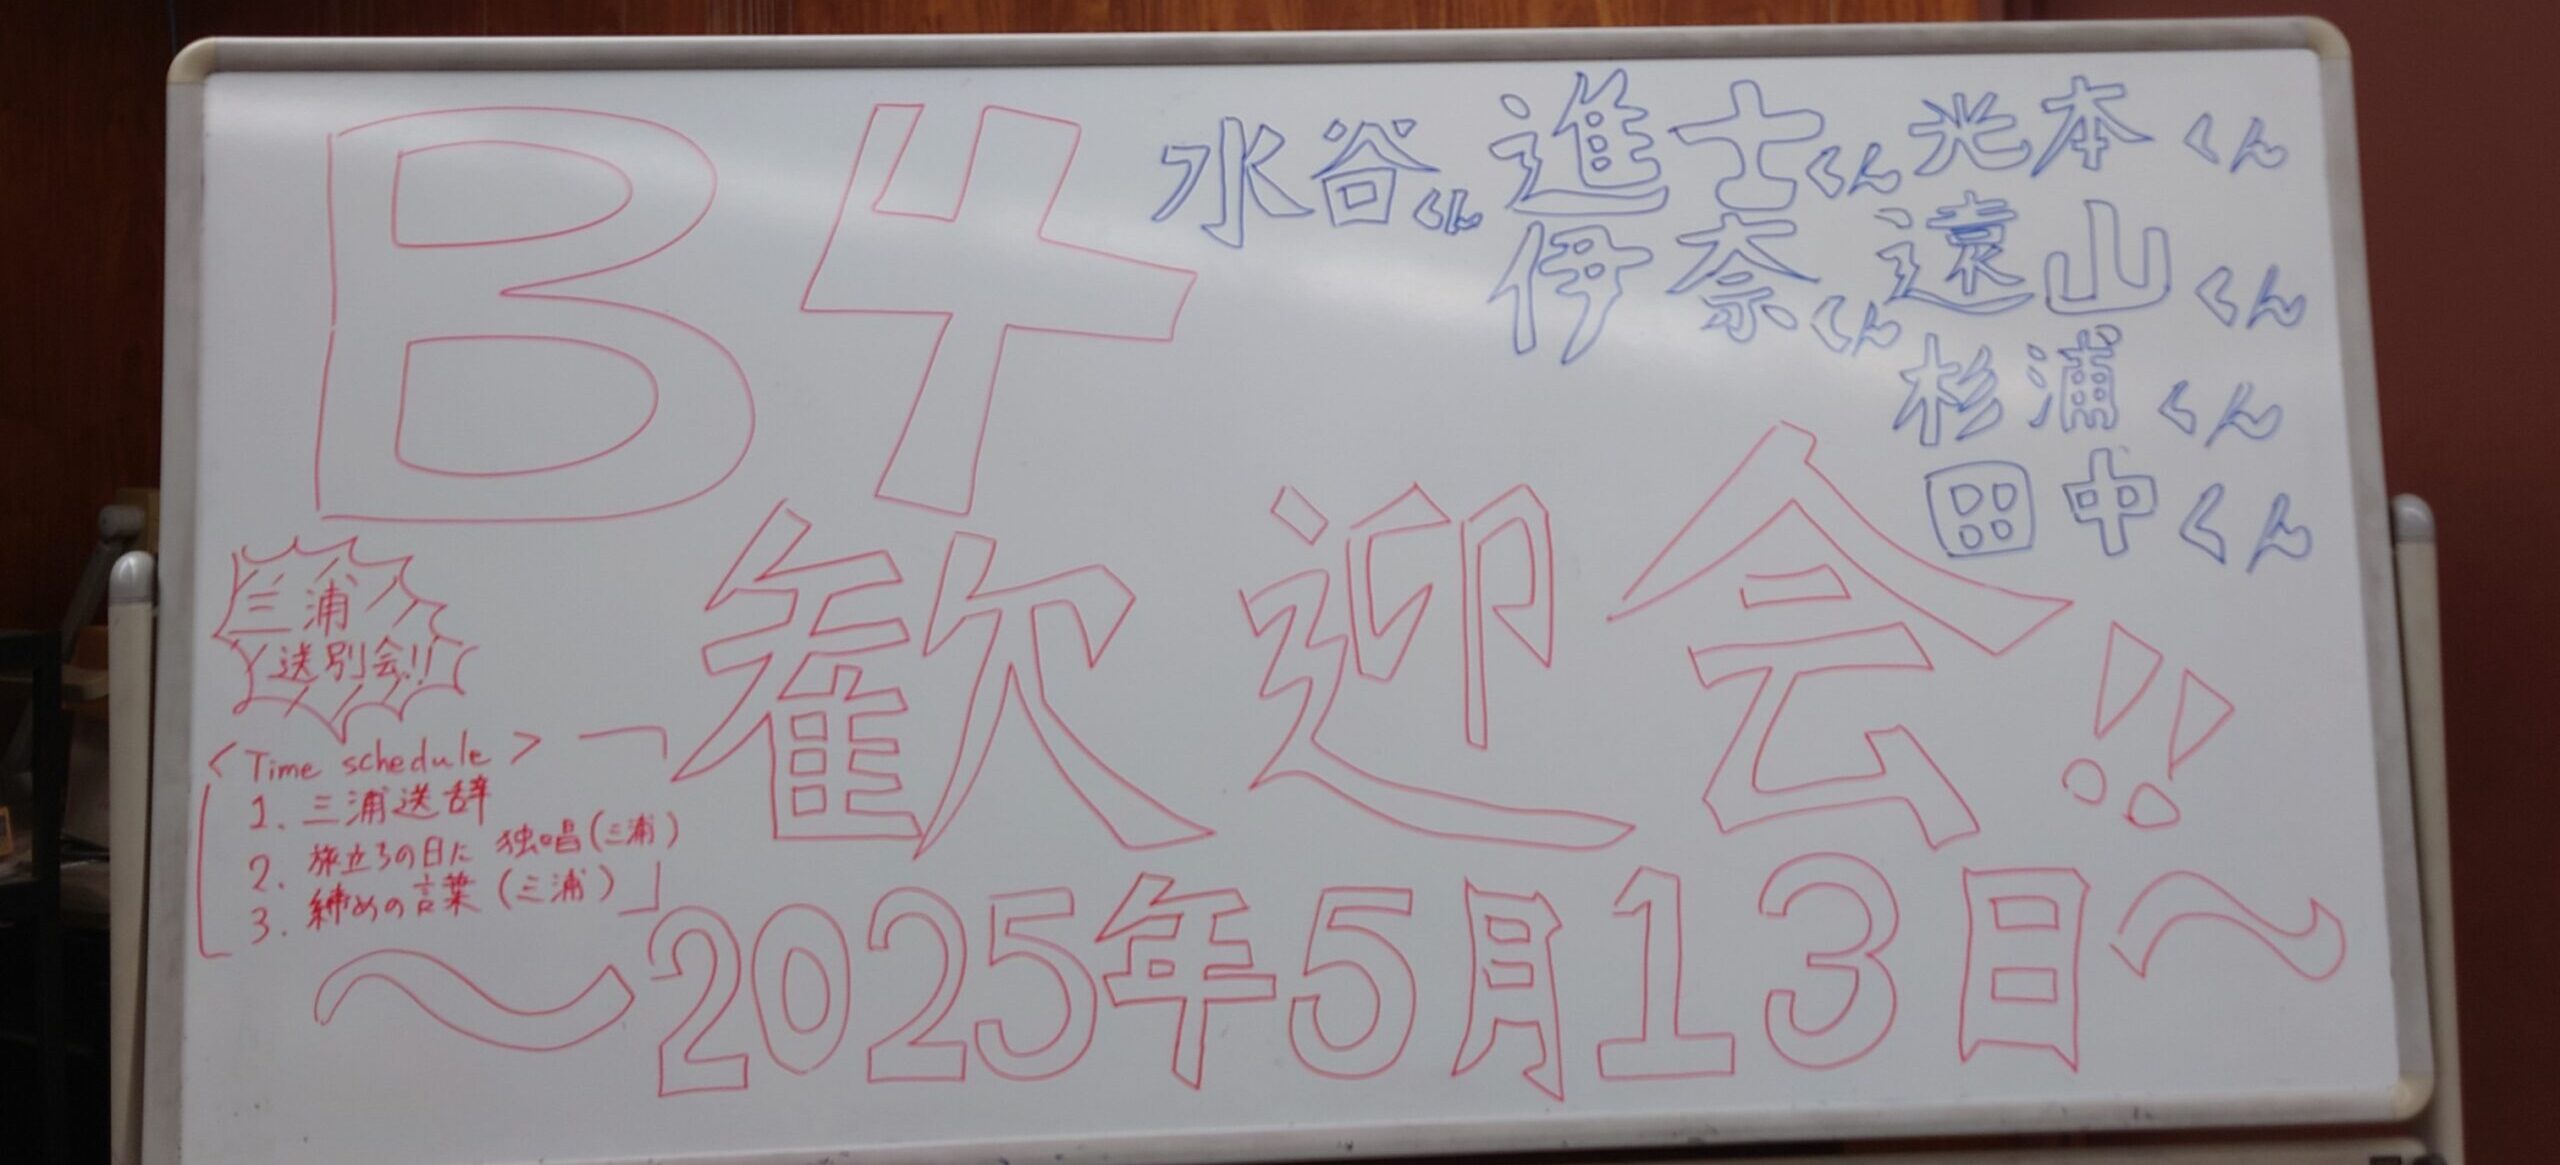 B4
水谷くん 進士くん 光本くん
伊奈くん 遠山くん
杉浦くん
田中くん
歓迎会!!
三浦
送別会!!
<Time schedule>
1. 三浦送辞
2. 旅立ちの日に 独唱(三浦)
3. 締めの言葉(三浦)
〜2025年5月13日〜